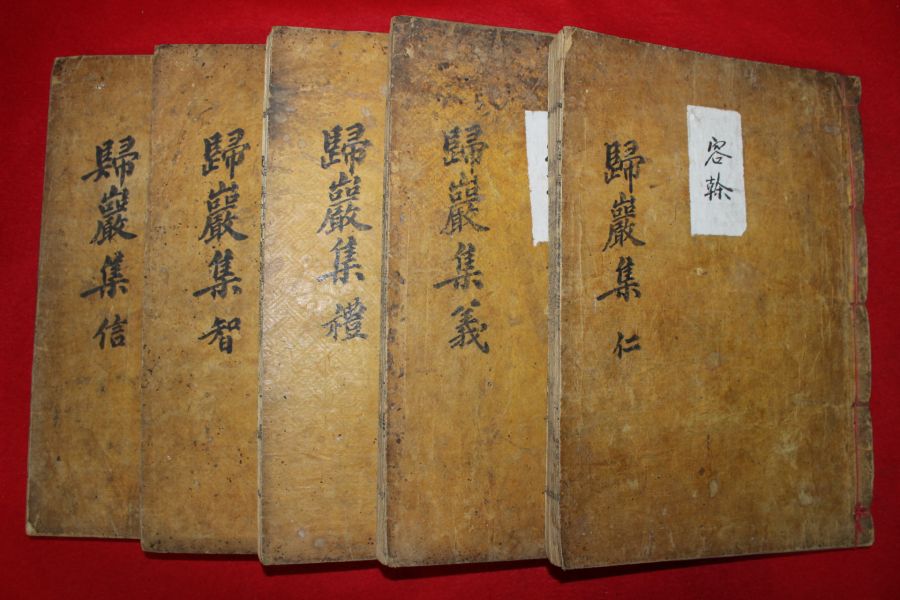 容幹
歸巖集 仁
歸巖集 義
歸巖集 禮
歸巖集 智
歸巖集 信